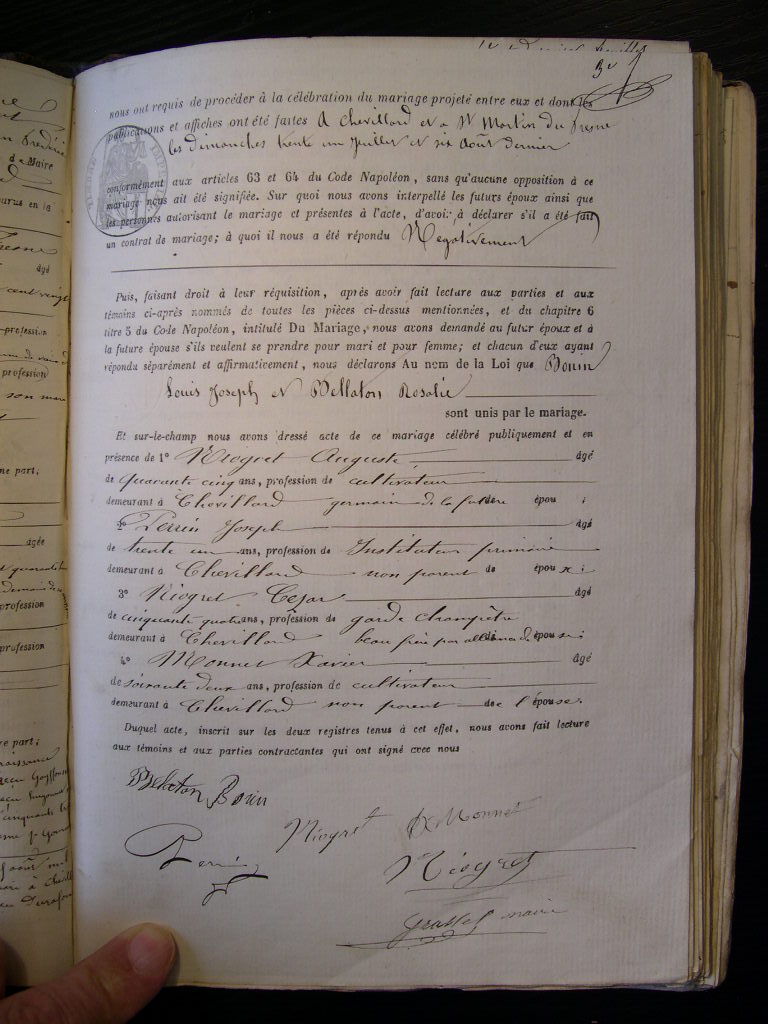 nous ont requis de procéder à la célébration du mariage projeté entre eux et dont les
publications et affiches ont été faites à Chevillard et à St Martin du Fresne
les dimanches trente un Juillet et six Août dernier
conformément aux articles 63 et 64 du Code Napoléon, sans qu'aucune opposition à ce
mariage nous ait été signifiée. Sur quoi nous avons interpellé les futurs époux ainsi que
les personnes autorisant le mariage et présentes à l'acte, d'avoir à déclarer s'il a été fait
un contrat de mariage; à quoi il nous a été répondu Négativement
Puis, faisant droit à leur réquisition, après avoir fait lecture aux parties et aux
témoins ci-après nommés de toutes les pièces ci-dessus mentionnées, et du chapitre 6
titre 5 du Code Napoléon, intitulé Du Mariage, nous avons demandé au futur époux et à
la future épouse s'ils veulent se prendre pour mari et pour femme; et chacun d'eux ayant
répondu séparément et affirmativement, nous déclarons Au nom de la Loi que Bouin
Louis Joseph et Bellaton Rosalie
sont unis par le mariage.
Et sur-le-champ nous avons dressé acte de ce mariage célébré publiquement et en
présence de 1° Niogret Auguste âgé
de quarante cinq ans, profession de cultivateur
demeurant à Chevillard germain de la future épou ;
2° Perrin Joseph âgé
de trente un ans, profession de Instituteur primaire
demeurant à Chevillard non parent de époux ;
3° Niogret Cézar âgé
de cinquante quatre ans, profession de garde champêtre
demeurant à Chevillard beau frère par alliance de épouse ;
4° Monnet Xavier âgé
de soixante deux ans, profession de cultivateur
demeurant à Chevillard non parent de l'épouse.
Duquel acte, inscrit sur les deux registres tenus à cet effet, nous avons fait lecture
aux témoins et aux parties contractantes qui ont signé avec nous
Bellaton Bouin
Niogret X Monnet
Perrin
Niogret
Grasset maire